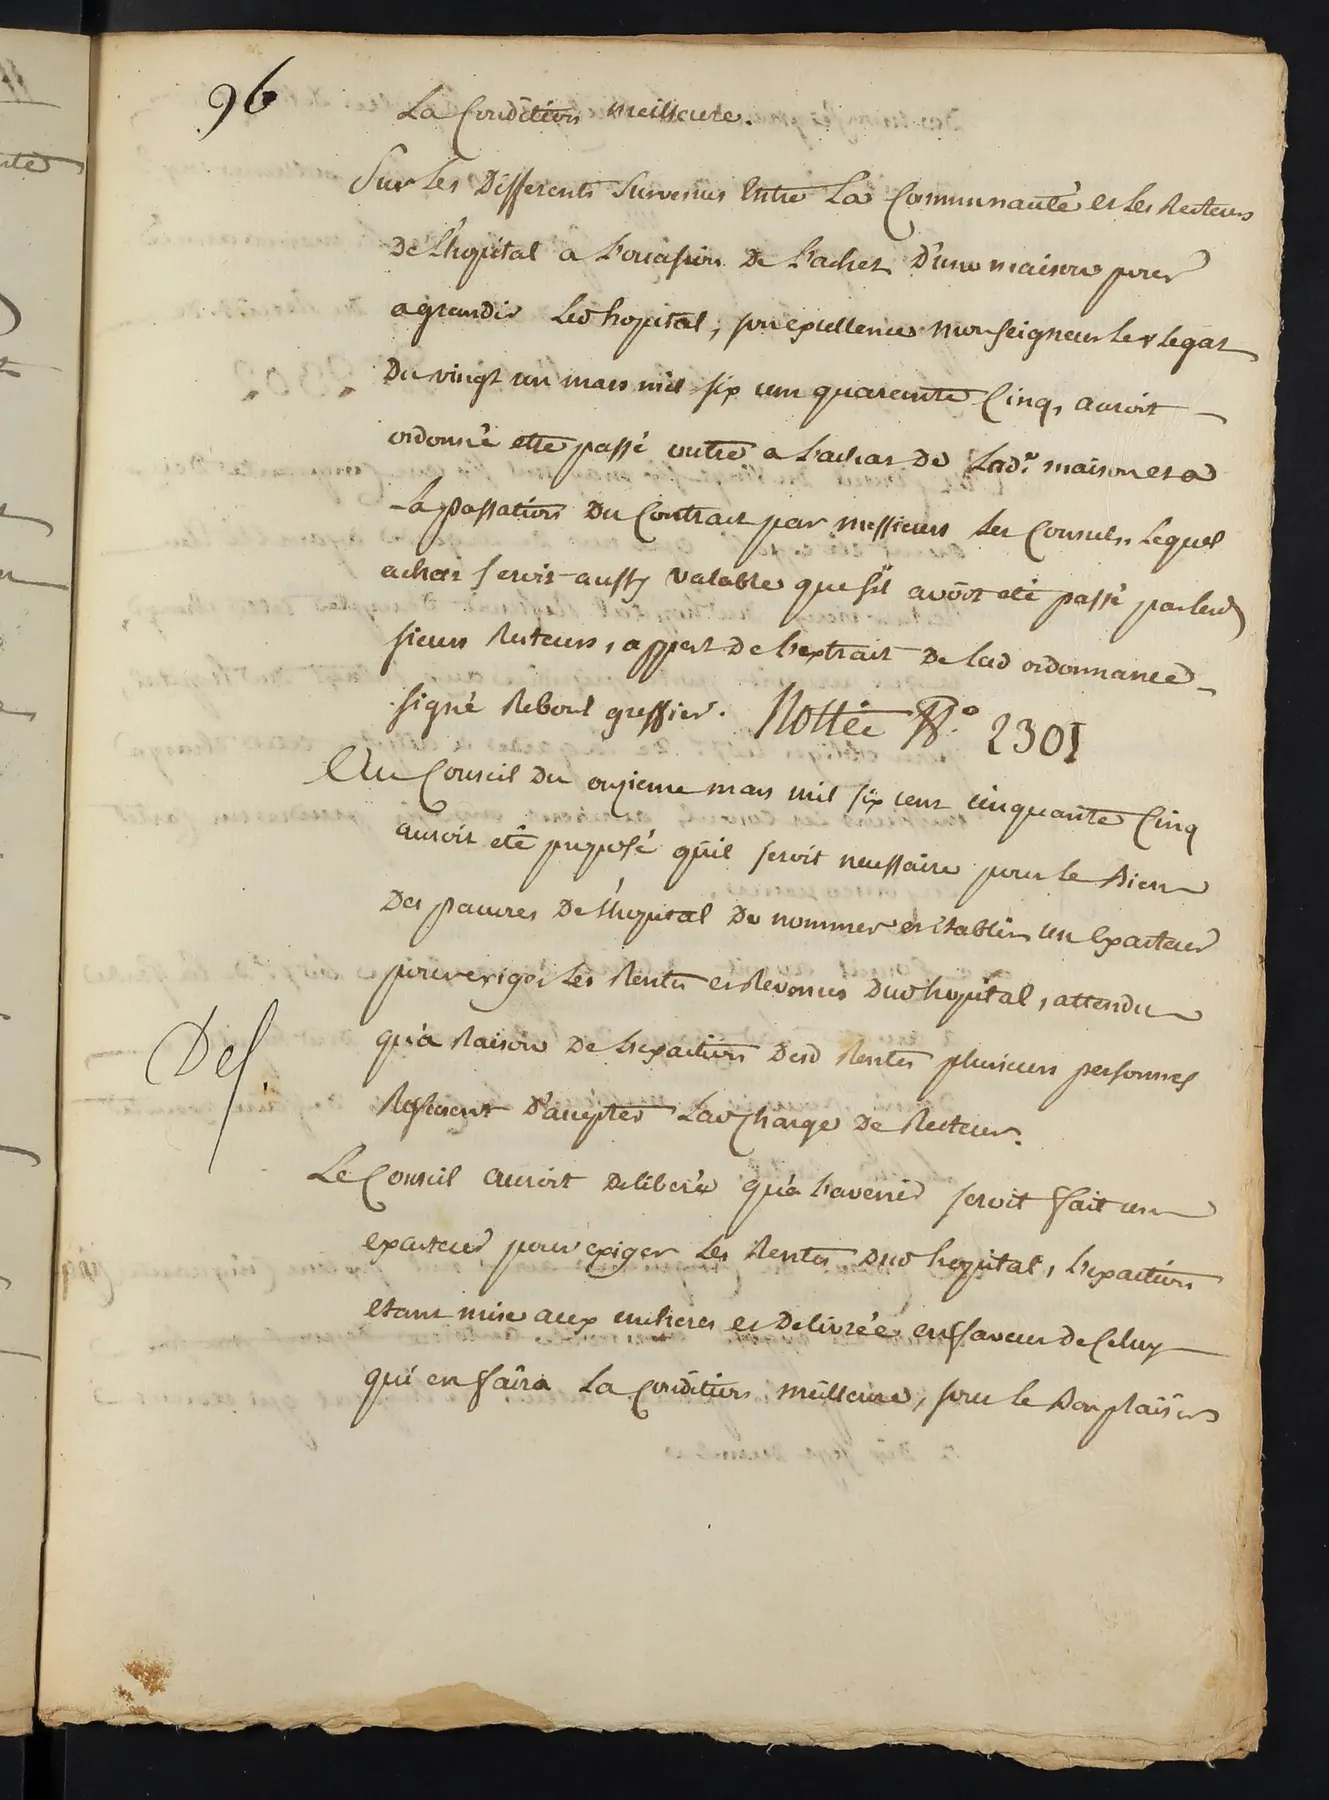 96
La Condition meilleure.
Sur Les Differents Survenus Entre La Communauté et Les Recteurs
De L'hopital a L'occasion De L'achet D'une maison pour
agrandir Led hopital, son excellence monseigneur Le v Legat
Du vingt un mars mil six cent quarente Cinq, auroit
ordonné etre passé outre a L'achat De Ladt maison et a
La passation Du Contrait par messieurs Les Consuls, Lequel
achat seroit aussy valable que s'il avoit eté passé par lesd
sieurs Recteurs, appert De L'extrait De lad ordonnance
signé Reboul greffier. Nottée No. 2301
Au Conseil Du onzieme mars mil six cent cinquante Cinq
auroit eté proposé qu'il seroit necessaire pour le Bien
Des pauvres De L'hopital De nommer et établir un Exacteur
pour exiger Les Rentes et Revenus Dud hopital, attendu
qu'a Raison De L'exaction Desd Rentes plusieurs personnes
Refusent D'accepter Lad Charge De Recteur.
Del.
Le Conseil auroit Deliberé qu'a L'avenir seroit fait un
exacteur pour exiger Les Rentes Dud hopital, L'exaction
etant mise aux encheres et Delivrée en faveur De Celuy
qui en faira La Condition meilleure, sous le Bon plaisir